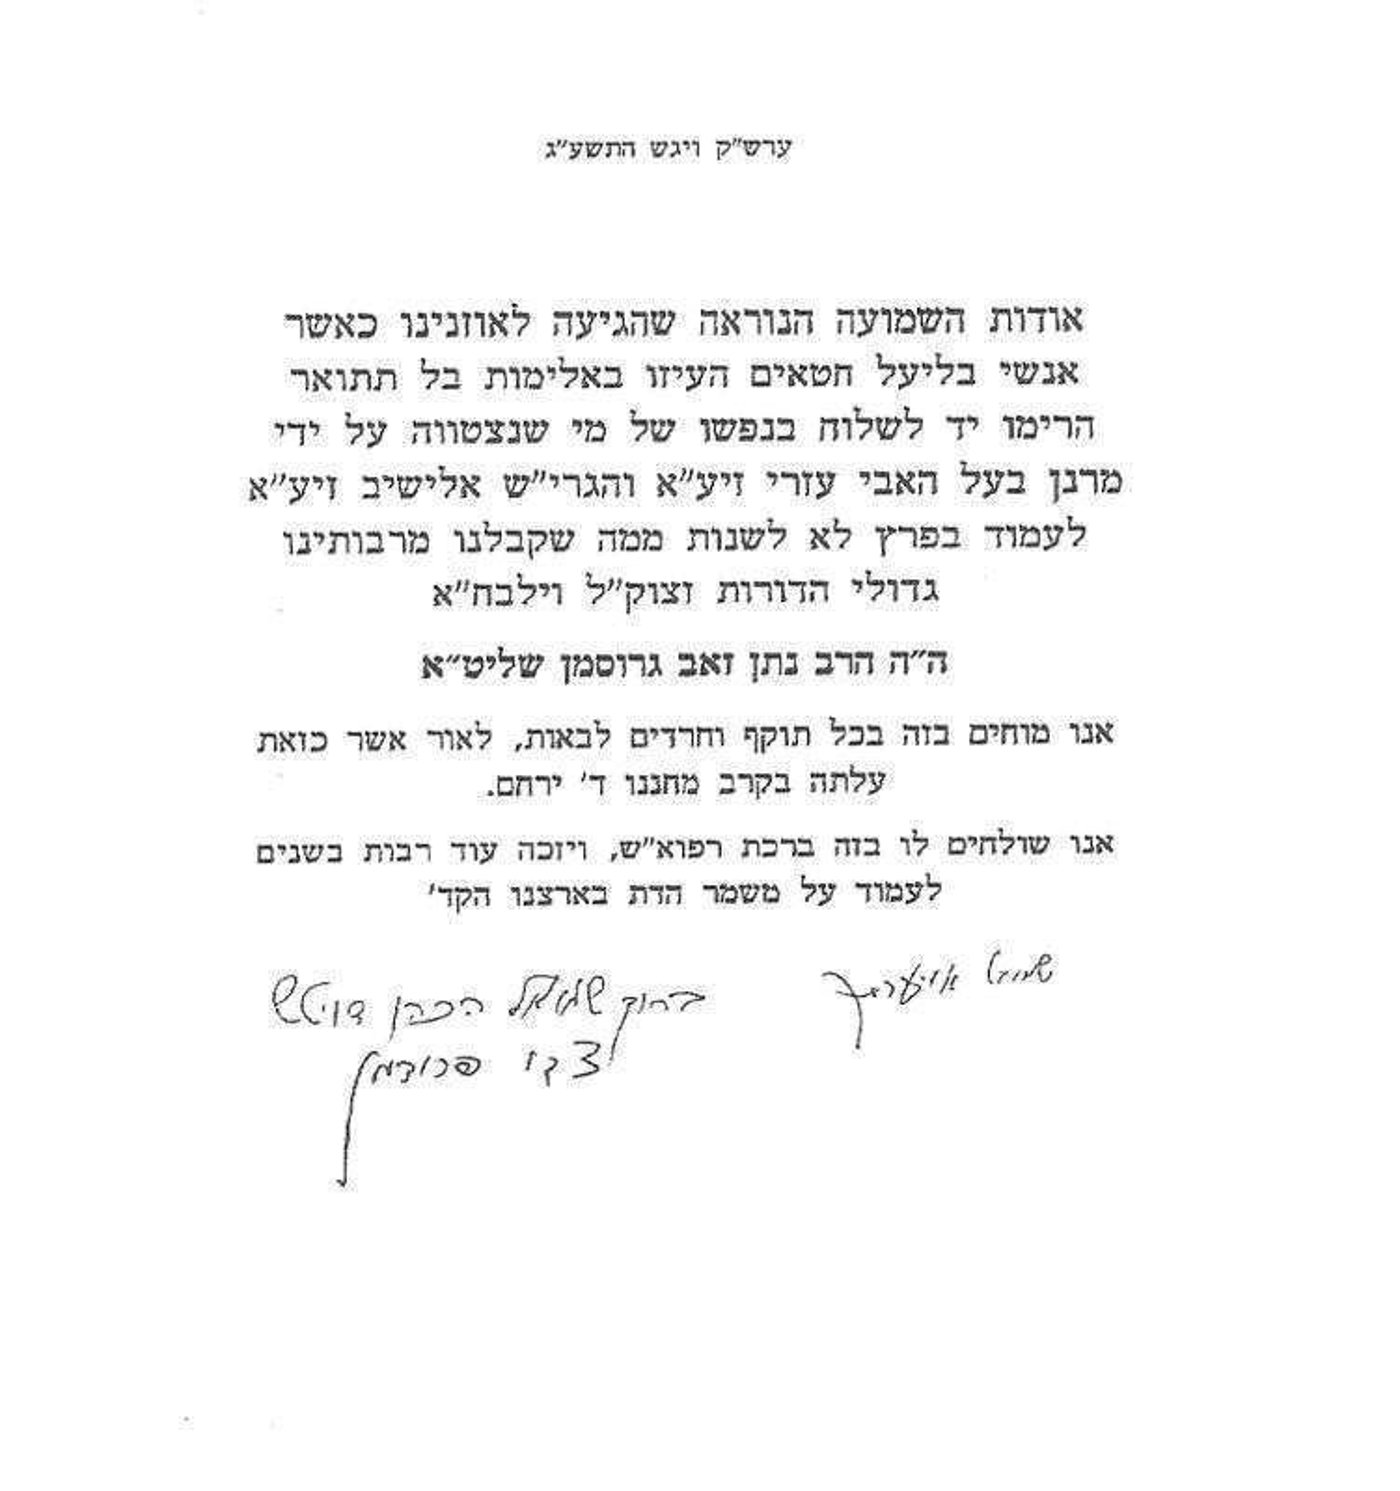 ערש"ק ויגש התשע"ג
אודות השמועה הנוראה שהגיעה לאוזנינו כאשר
אנשי בליעל חטאים העיזו באלימות בל תתואר
הרימו יד לשלוח בנפשו של מי שנצטווה על ידי
מרנן בעל האבי עזרי זיע"א והגרי"ש אלישיב זיע"א
לעמוד בפרץ לא לשנות ממה שקבלנו מרבותינו
גדולי הדורות זצוק"ל וילבח"א
ה"ה הרב נתן זאב גרוסמן שליט"א
אנו מוחים בזה בכל תוקף וחרדים לבאות, לאור אשר כזאת
עלתה בקרב מחננו ד' ירחם.
אנו שולחים לו בזה ברכת רפוא"ש, ויזכה עוד רבות בשנים
לעמוד על משמר הדת בארצנו הקד'
שמואל אויערבך
ברוך שמואל הכהן דויטש
צבי פרידמן